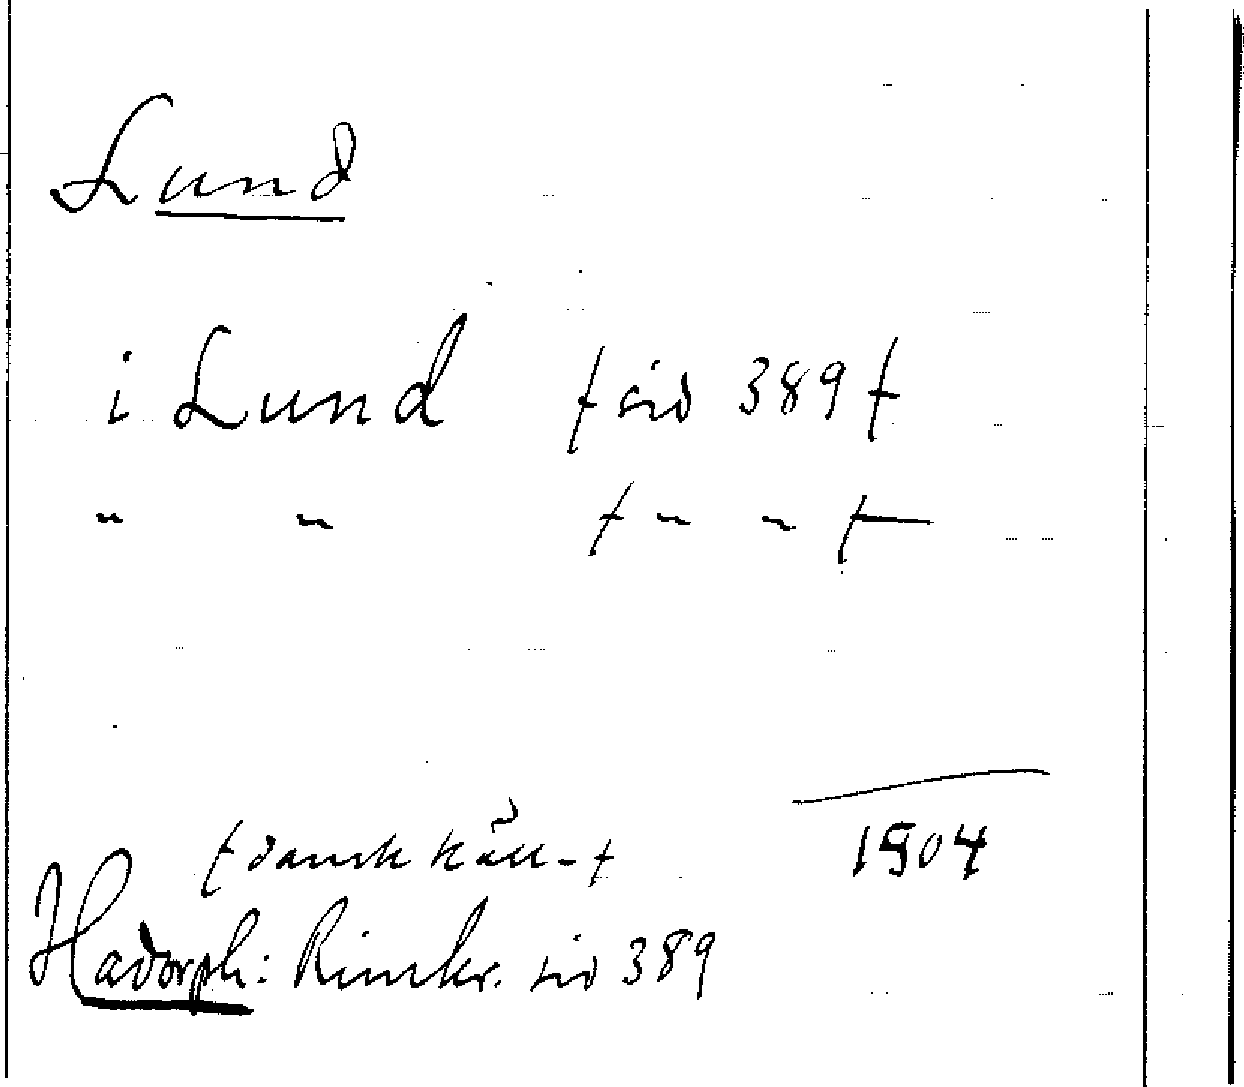 Lund
i Lund f sid 389 f
" " f " " f —
1504
f dansk käll - f
Hadorph: Rimkr. sid 389